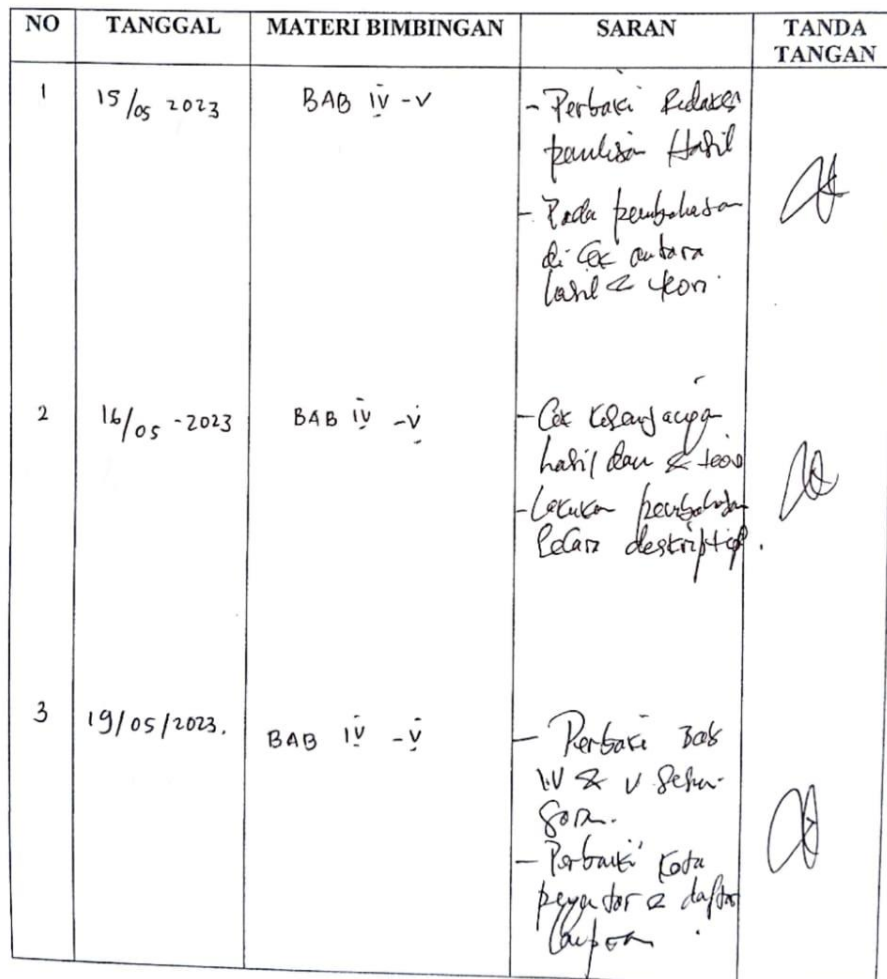 NO TANGGAL MATERI BIMBINGAN SARAN TANDA TANGAN
1 15/05 2023 BAB IV - V - Perbaiki Redaksi
penulisan Hasil
- Pada pembahasan
di Cek antara
hasil & teori
2 16/05 - 2023 BAB IV - V - Cek
hasil dan & teori
- Lakukan pembahasan
secara deskriptif.
3 19/05/2023. BAB IV - V - Perbaiki Bab
IV & V
saran.
- Perbaiki Kata
pengantar & daftar
lampiran